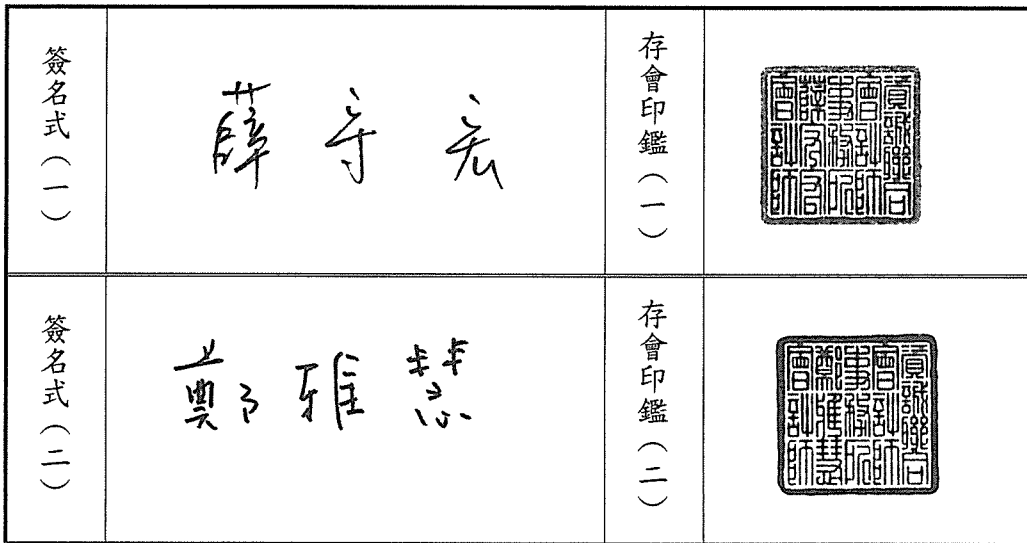 簽名式（一）
薛守宏
存會印鑑（一）
資誠聯合
會計師
事務所
薛守宏
會計師
簽名式（二）
鄭雅慧
存會印鑑（二）
資誠聯合
會計師
事務所
鄭雅慧
會計師